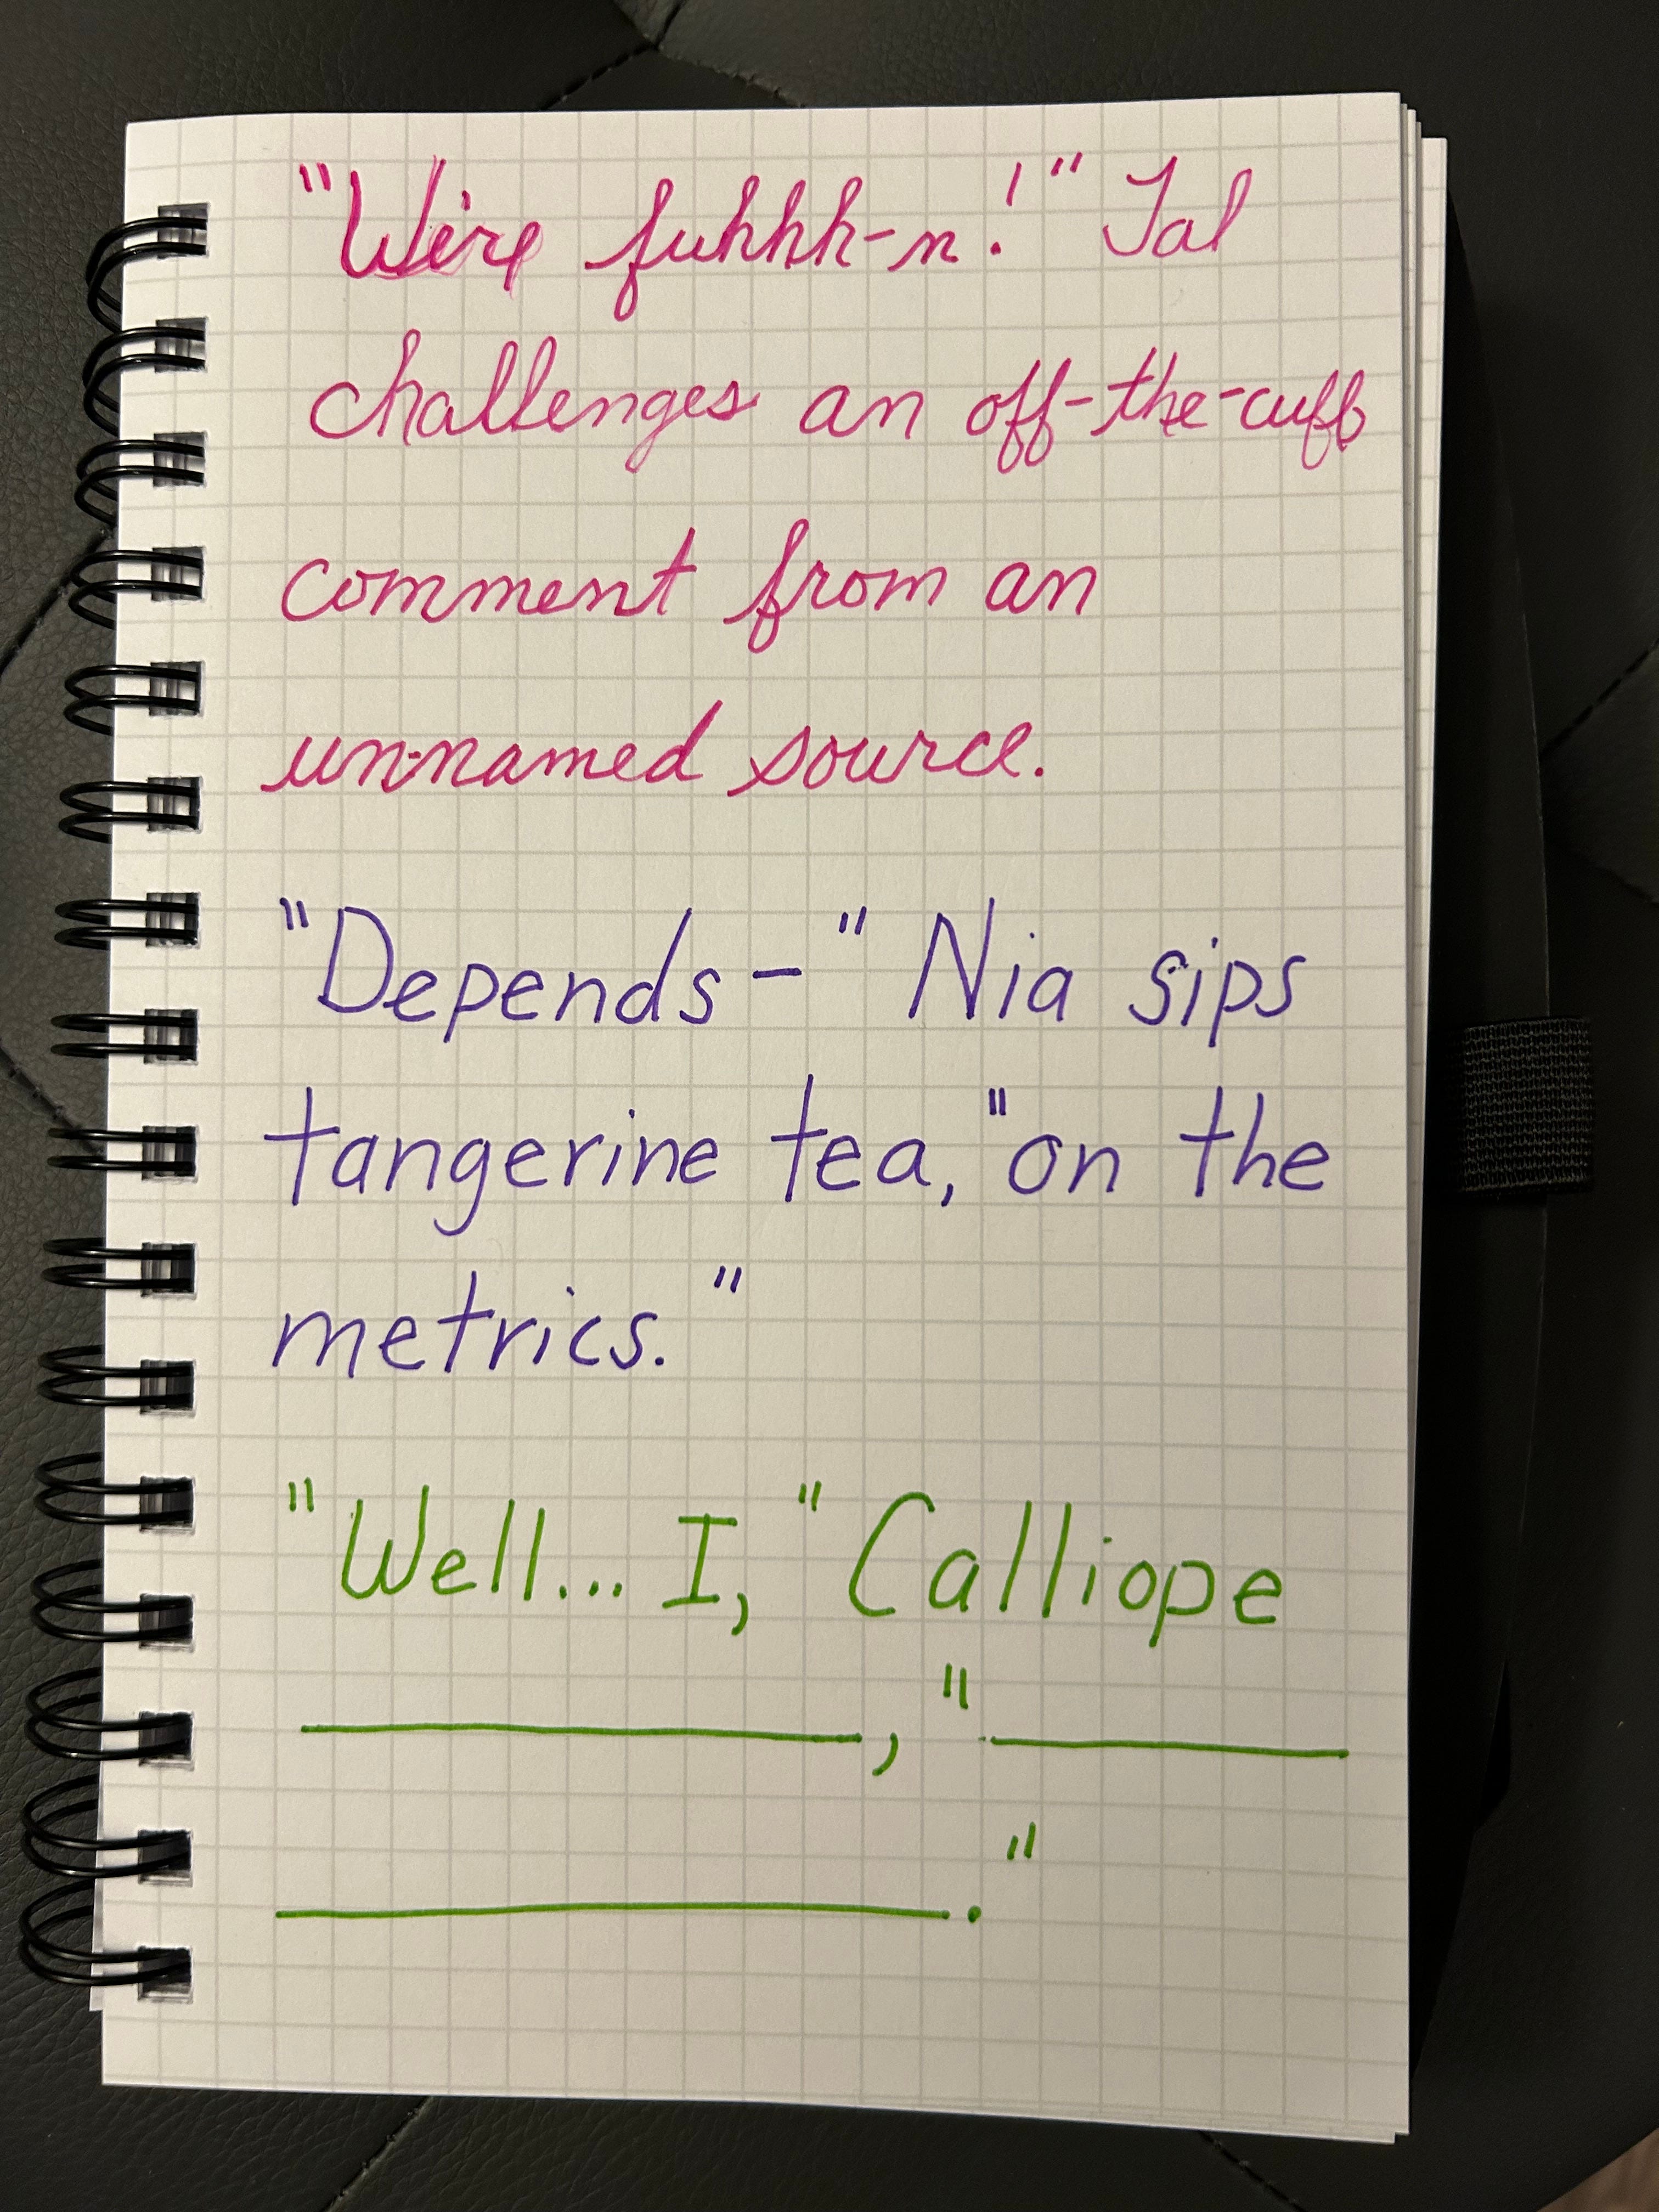 "We're fuhhh-n!" Tal
challenges an off-the-cuff
comment from an
unnamed source.
"Depends-" Nia sips
tangerine tea, "on the
metrics."
"Well... I," Calliope
__________, "______
____________."